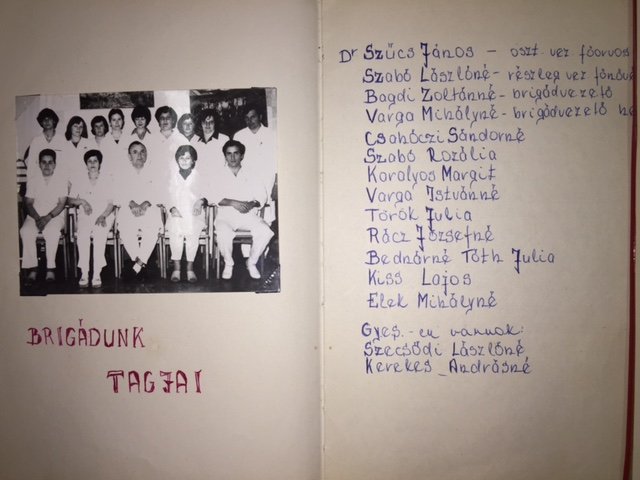 BRIGÁDUNK
TAGJAI
Dr Szűcs János - oszt. vez főorvos
Szabó Lászlóné - részleg vez főnővé
Bagdi Zoltánné - brigádvezető
Varga Mihályné - brigádvezető he
Csabóczi Sándorné
Szabó Rozália
Karalyos Margit
Varga Istvánné
Török Julia
Rácz Józsefné
Bednárné Tóth Julia
Kiss Lajos
Elek Mihályné
Gyes.-en vannak:
Szecsődi Lászlóné
Kerekes Andrásné